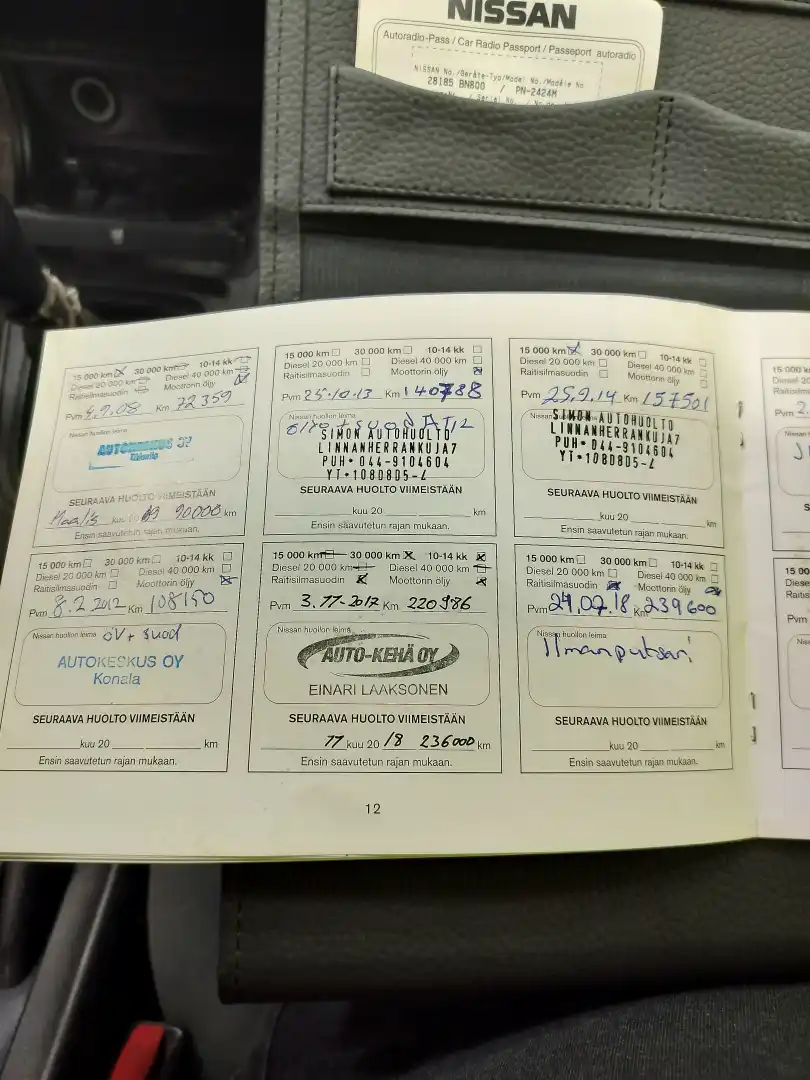 NISSAN
Autoradio-Pass / Car Radio Passport / Passeport autoradio
NISSAN No./Geräte-Typ/Model No./Modèle No
28185 BN800 / PN-2424M
15 000 km 30 000 km 10-14 kk
Diesel 20 000 km Diesel 40 000 km
Raitisilmasuodin Moottorin öljy
Pvm 4.9.08 Km 72359
Nissan huollon leima
SEURAAVA HUOLTO VIIMEISTÄÄN
Maalis kuu 20 09 90000 km
Ensin saavutetun rajan mukaan.
15 000 km 30 000 km 10-14 kk
Diesel 20 000 km Diesel 40 000 km
Raitisilmasuodin Moottorin öljy
Pvm 25.10.13 Km 140788
Nissan huollon leima
SIMON AUTOHUOLTO
LINNANHERRANKUJA7
PUH• 044-9104604
YT•1080805-4
SEURAAVA HUOLTO VIIMEISTÄÄN
kuu 20 km
Ensin saavutetun rajan mukaan.
15 000 km 30 000 km 10-14 kk
Diesel 20 000 km Diesel 40 000 km
Raitisilmasuodin Moottorin öljy
Pvm 25.9.14 Km 157501
Nissan
SIMON AUTOHUOLTO
LINNANHERRANKUJA7
PUH• 044-9104604
YT•1080805-4
SEURAAVA HUOLTO VIIMEISTÄÄN
kuu 20 km
Ensin saavutetun rajan mukaan.
15 000 km 30 000 km 10-14 kk
Diesel 20 000 km Diesel 40 000 km
Raitisilmasuodin Moottorin öljy
Pvm 8.2.2012 Km 108150
Nissan huollon leima öV+ suod
AUTOKESKUS OY
Konala
SEURAAVA HUOLTO VIIMEISTÄÄN
kuu 20 km
Ensin saavutetun rajan mukaan.
15 000 km 30 000 km 10-14 kk
Diesel 20 000 km Diesel 40 000 km
Raitisilmasuodin Moottorin öljy
Pvm 3.11-2017 Km 220986
Nissan huollon leima
AUTO-KEHÄ OY
EINARI LAAKSONEN
SEURAAVA HUOLTO VIIMEISTÄÄN
11 kuu 20 18 236000 km
Ensin saavutetun rajan mukaan.
15 000 km 30 000 km 10-14 kk
Diesel 20 000 km Diesel 40 000 km
Raitisilmasuodin Moottorin öljy
Pvm 24.07.18 Km 239600
Nissan huollon leima
SEURAAVA HUOLTO VIIMEISTÄÄN
kuu 20 km
Ensin saavutetun rajan mukaan.
12